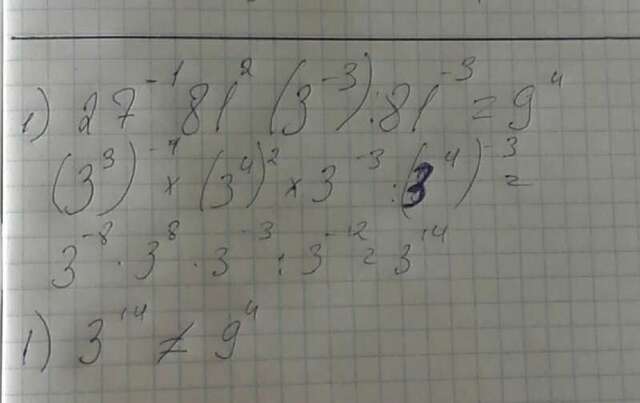 1) 27⁻¹ 81² (3⁻³) : 81⁻³ = 9⁴
(3³)⁻¹ × (3⁴)² × 3⁻³ : (3⁴)⁻³ =
3⁻⁸ · 3⁸ · 3⁻³ : 3⁻¹² = 3¹⁴
1) 3¹⁴ ≠ 9⁴